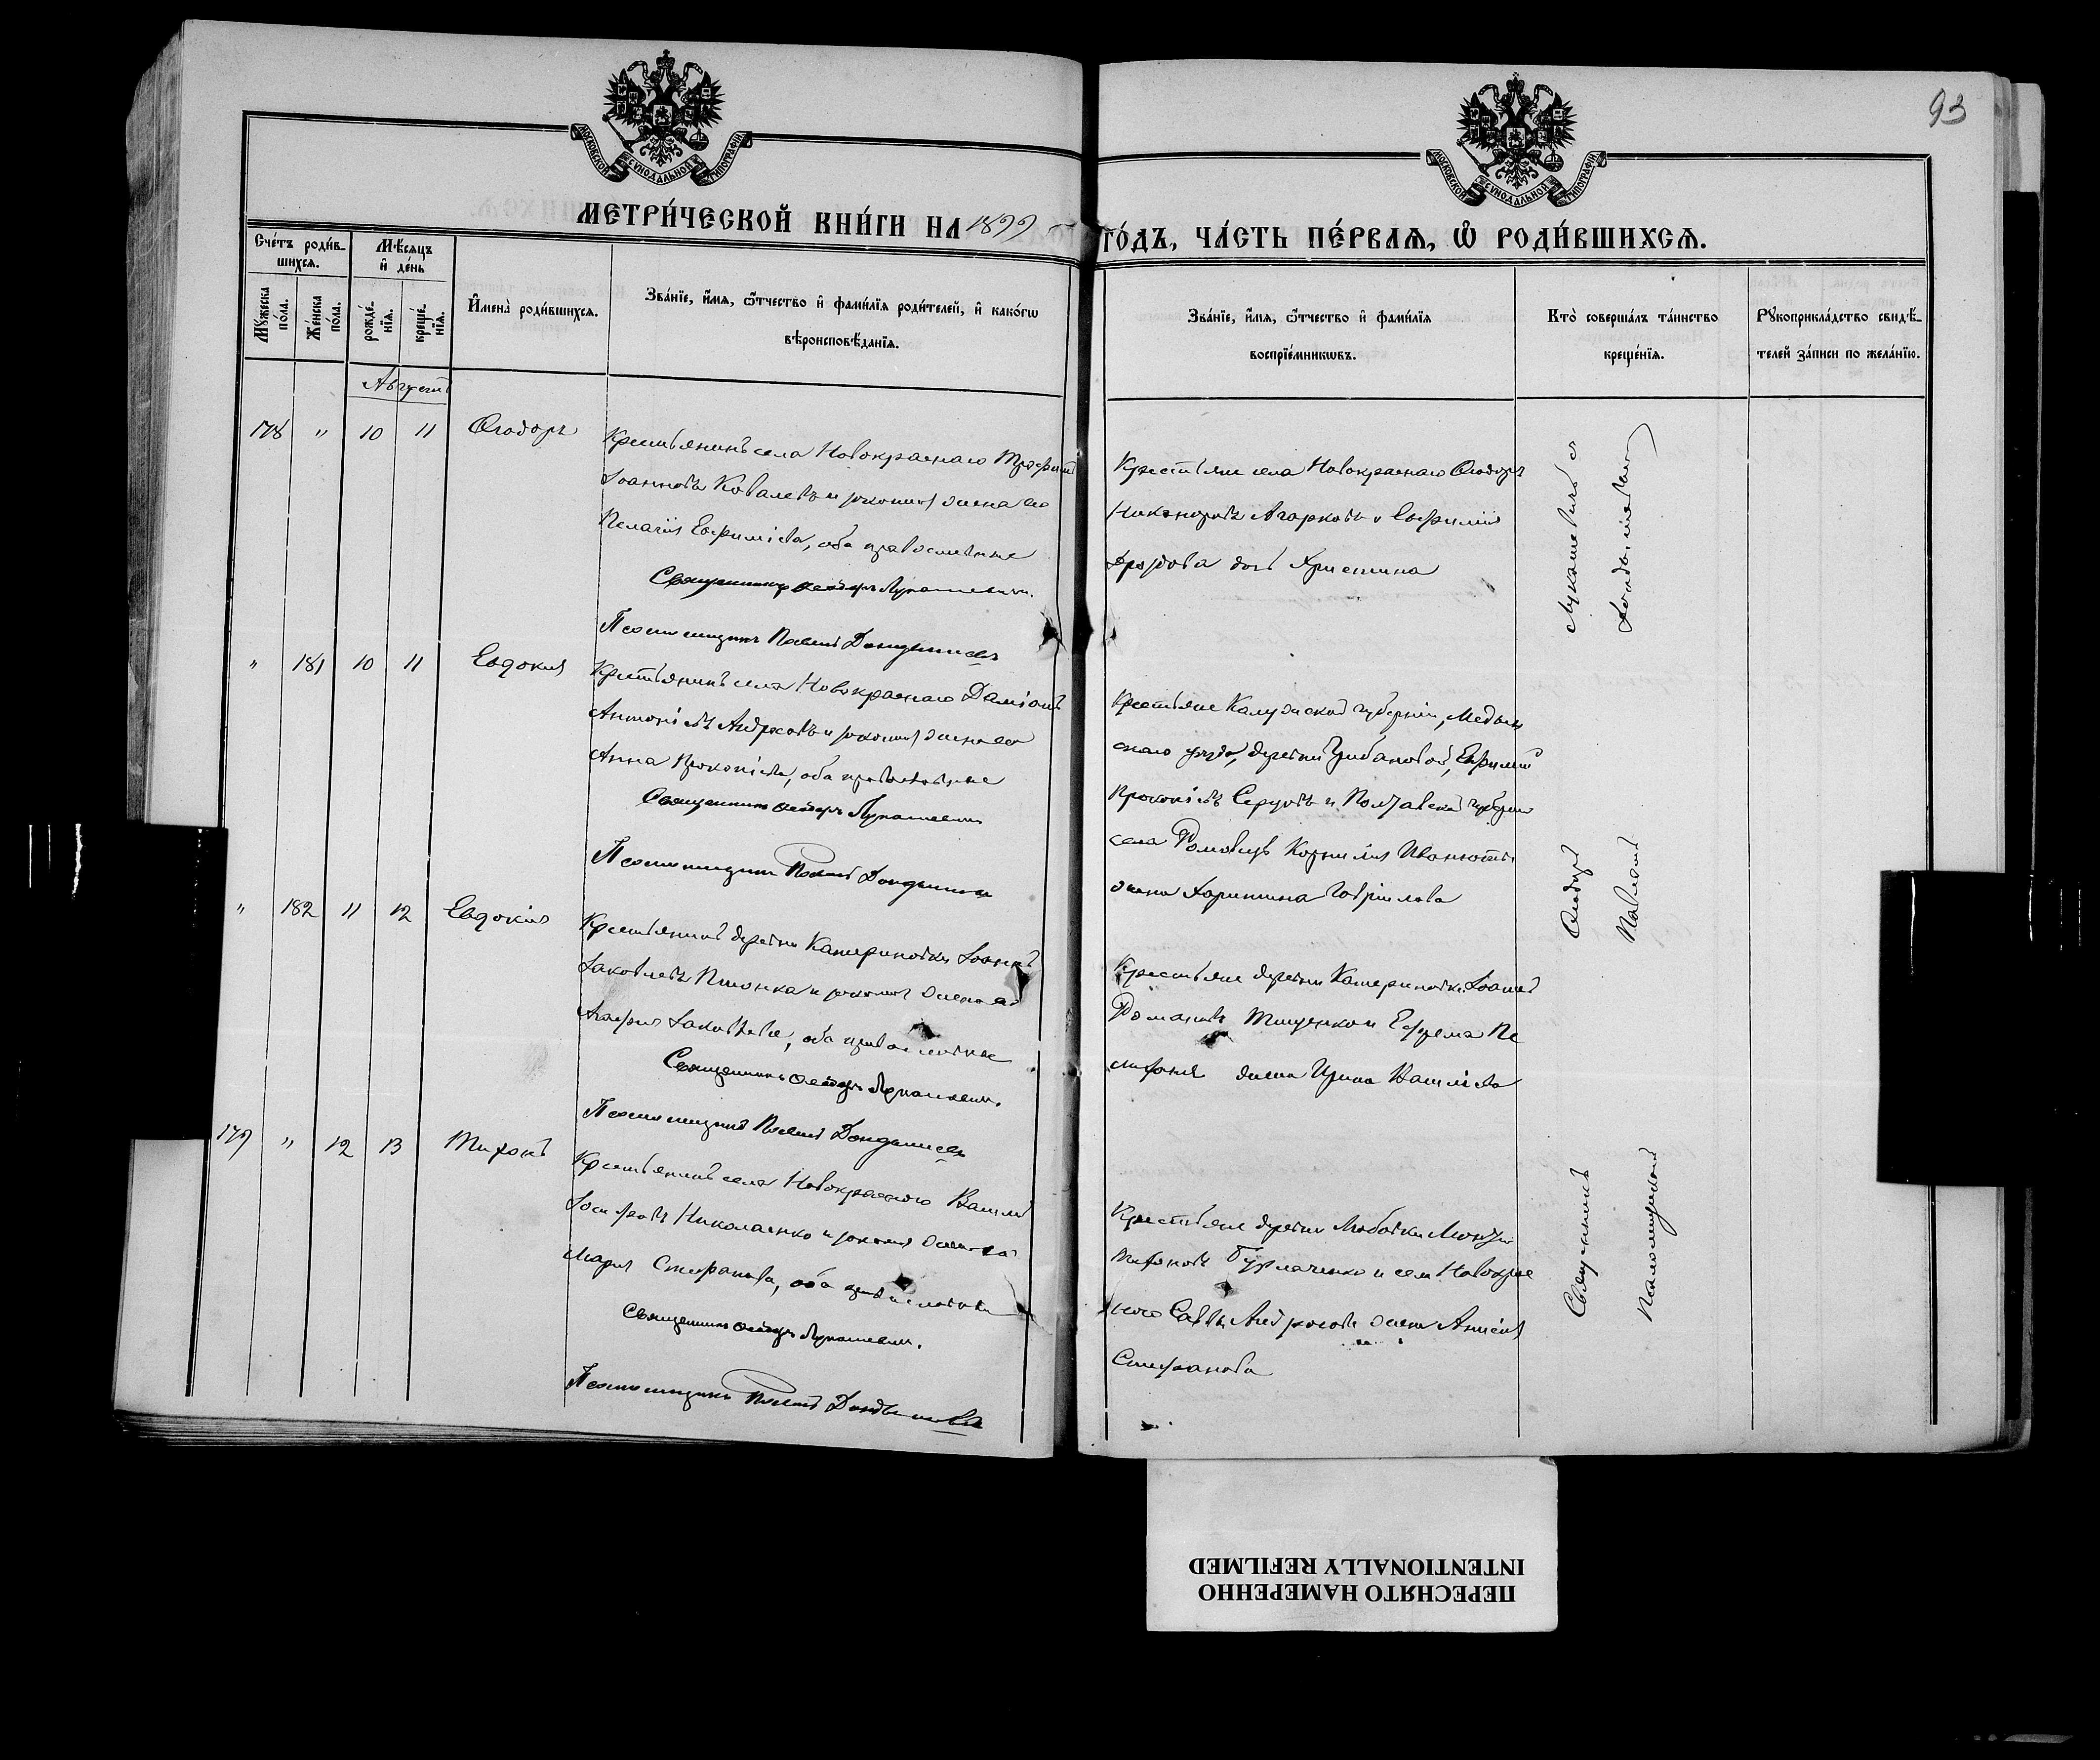 93
МОСКОВСКОЙ СѴНОДАЛЬНОЙ ТИПОГРАФІИ
МОСКОВСКОЙ СѴНОДАЛЬНОЙ ТИПОГРАФІИ
МЕТРИ́ЧЕСКОЙ КНИ́ГИ НА 1899 ГО́ДЪ, ЧА́СТЬ ПЕ́РВАѦ, Ѽ РОДИ́ВШИХСѦ.
Сче́тъ роди́в-
шихсѧ.
Мꙋ́жеска по́ла.
Же́нска по́ла.
Мѣ́сѧцъ
и҆ де́нь
рожде́-
нїѧ.
креще́-
нїѧ.
И҆мена̀ роди́вшихсѧ.
Зва́нїе, и҆́мѧ, ѻ҆́тчество и҆ фами́лїѧ роди́телей, и҆ како́гѡ
вѣроисповѣ́данїѧ.
Зва́нїе, и҆́мѧ, ѻ҆́тчество и҆ фами́лїѧ
воспрїе́мникѡвъ.
Кто̀ соверша́лъ та́инство
креще́нїѧ.
Рꙋкоприкла́дство свидѣ́-
телей за́писи по жела́нїю.
Августъ
178 " 10 11 Ѳеодоръ
Крестьянинъ села Новокраснаго Трофимъ
Іоанновъ Ковалевъ и законная жена его
Пелагія Евфиміева, оба православные
Священникъ Ѳеодоръ Лукашевичъ.
Псаломщикъ Павелъ
Крестьяне села Новокраснаго Ѳеодоръ
Никаноровъ Агарковъ и Евфимія
дочь Христина
" 181 10 11 Евдокія
Крестьянинъ села Новокраснаго Даміанъ
Антоніевъ Андросовъ и законная жена его
Анна Прокопіева, оба православные
Священникъ Ѳеодоръ Лукашевичъ
Псаломщикъ Павелъ
Крестьяне Калужской губерніи, Медын
скаго уѣзда, деревни Грибановой, Евфимій
Прокопіевъ и Полтавской губерніи
села Корнилія
жена Харитина Гавріилова
" 182 11 12 Евдокія
Крестьянинъ деревни Катериновки Іоаннъ
Іаковлевъ Пшонка и законная жена его
Агафія Іаковлева, оба православные
Священникъ Ѳеодоръ Лукашевичъ.
Псаломщикъ Павелъ
Крестьяне деревни Катериновки Іоаннъ
Романовъ Тищенко и Ефрема
жена Ирина Василіева
179 " 12 13 Тихонъ
Крестьянинъ села Новокраснаго Василій
Іосифовъ Николаенко и законная жена его
Марія Стефанова, оба православные
Священникъ Ѳеодоръ Лукашевичъ.
Псаломщикъ Павелъ
Крестьяне деревни Любовки
Тихоновъ Бурлаченко и села Новокрас
наго Саввы Андросова жена Анисія
Стефанова
Священникъ Ѳеодоръ Лукашевичъ и
Псаломщикъ Павелъ
ПЕРЕСНЯТО НАМЕРЕННО
INTENTIONALLY REFILMED